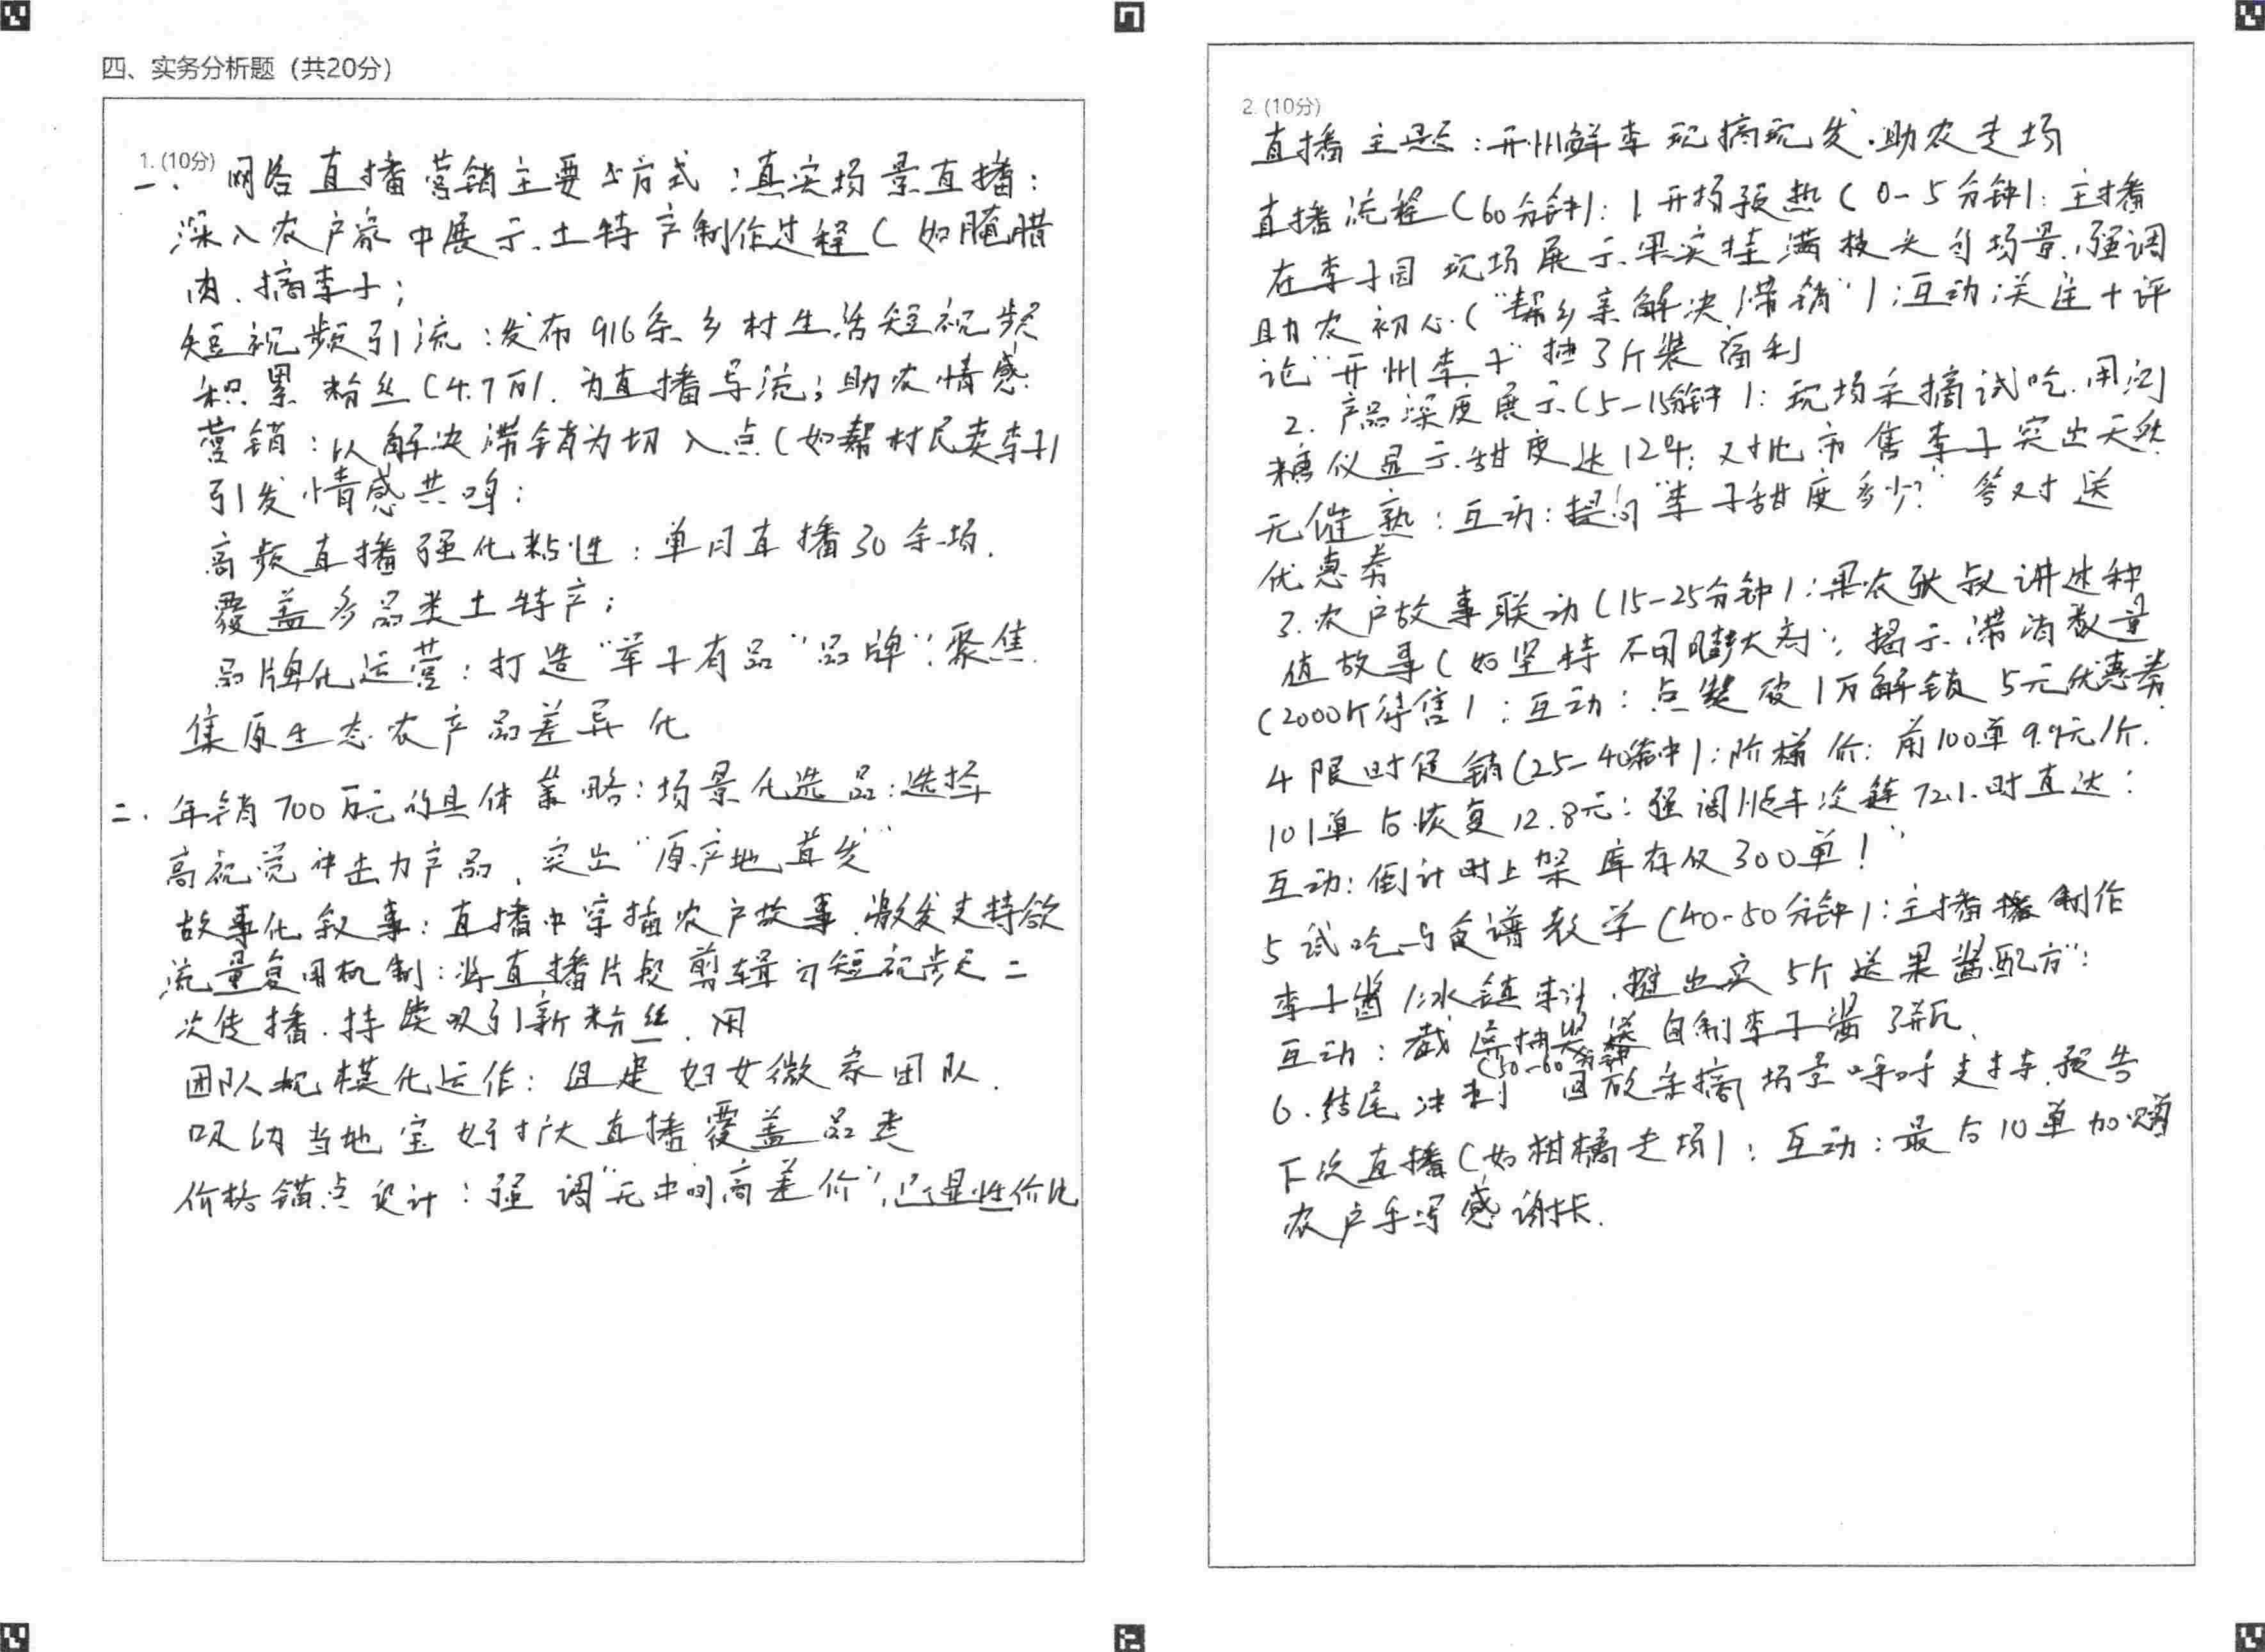 四、实务分析题（共20分）
1.(10分)
一、网络直播营销主要方式：真实场景直播：
深入农户家中展示土特产制作过程（如腌腊
肉、摘李子；
短视频引流：发布916条乡村生活短视频
积累粉丝（4.7万）.为直播导流；助农情感
营销：以解决滞销为切入点（如帮村民卖李子）
引发情感共鸣：
高频直播强化粘性：单月直播30余场.
覆盖多品类土特产；
品牌化运营：打造“苹子有品”品牌“.聚焦
集原生态农产品差异化
二.年销700万元的具体策略：场景化选品：选择
高视觉冲击力产品，突出“原产地直发”
故事化叙事：直播中穿插农户故事.激发支持欲
流量复用机制：将直播片段剪辑为短视频二
次传播.持续吸引新粉丝.用
团队规模化运作：组建妇女微家团队.
吸纳当地宝妈扩大直播覆盖品类
价格锚点设计：强调“无中间商差价”,凸显性价比
2.(10分)
直播主题：开州鲜李现摘现发.助农专场
直播流程（60分钟）：1.开场预热（0-5分钟）：主播
在李子园现场展示果实挂满枝头的场景.强调
助农初心（“帮乡亲解决滞销”）；互动：关注+评
论“开州李子”抽3斤装福利
2.产品深度展示（5-15分钟）：现场采摘试吃.用测
糖仪显示甜度达12%；对比市售李子突出天然
无催熟：互动：提问“李子甜度多少？”答对送
优惠券
3.农户故事联动（15-25分钟）：果农张叔讲述种
值故事（如坚持不用膨大剂”；揭示滞销数量
（2000斤待售）；互动：点赞破1万解锁5元优惠券.
4限时促销（25-40分钟）：阶梯价：前100单9.9元/斤.
101单后恢复12.8元：强调顺丰冷链72小时直达：
互动：倒计时上架库存仅300单！”
5试吃与食谱教学（40-50分钟）：主播制作
李子酱/冰镇李汁.推出买5斤送果酱配方”：
互动：截屏抽奖送自制李子酱3瓶.
(50-60分钟)
6.结尾冲刺 回放采摘场景呼吁支持.预告
下次直播（如柑橘专场）：互动：最后10单加赠
农户手写感谢卡.